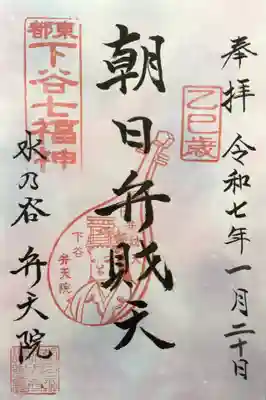 奉拝 令和七年一月二十日
乙巳歳
朝日弁財天
東都
下谷七福神
下谷
弁天院
水乃谷 弁天院